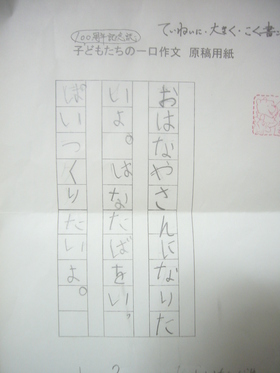 100周年記念誌
ていねいに・大きく・こく書
子どもたちの一口作文 原稿用紙
おはなやさんになりた
いよ。はなたばをい
っぱいつくりたいよ。